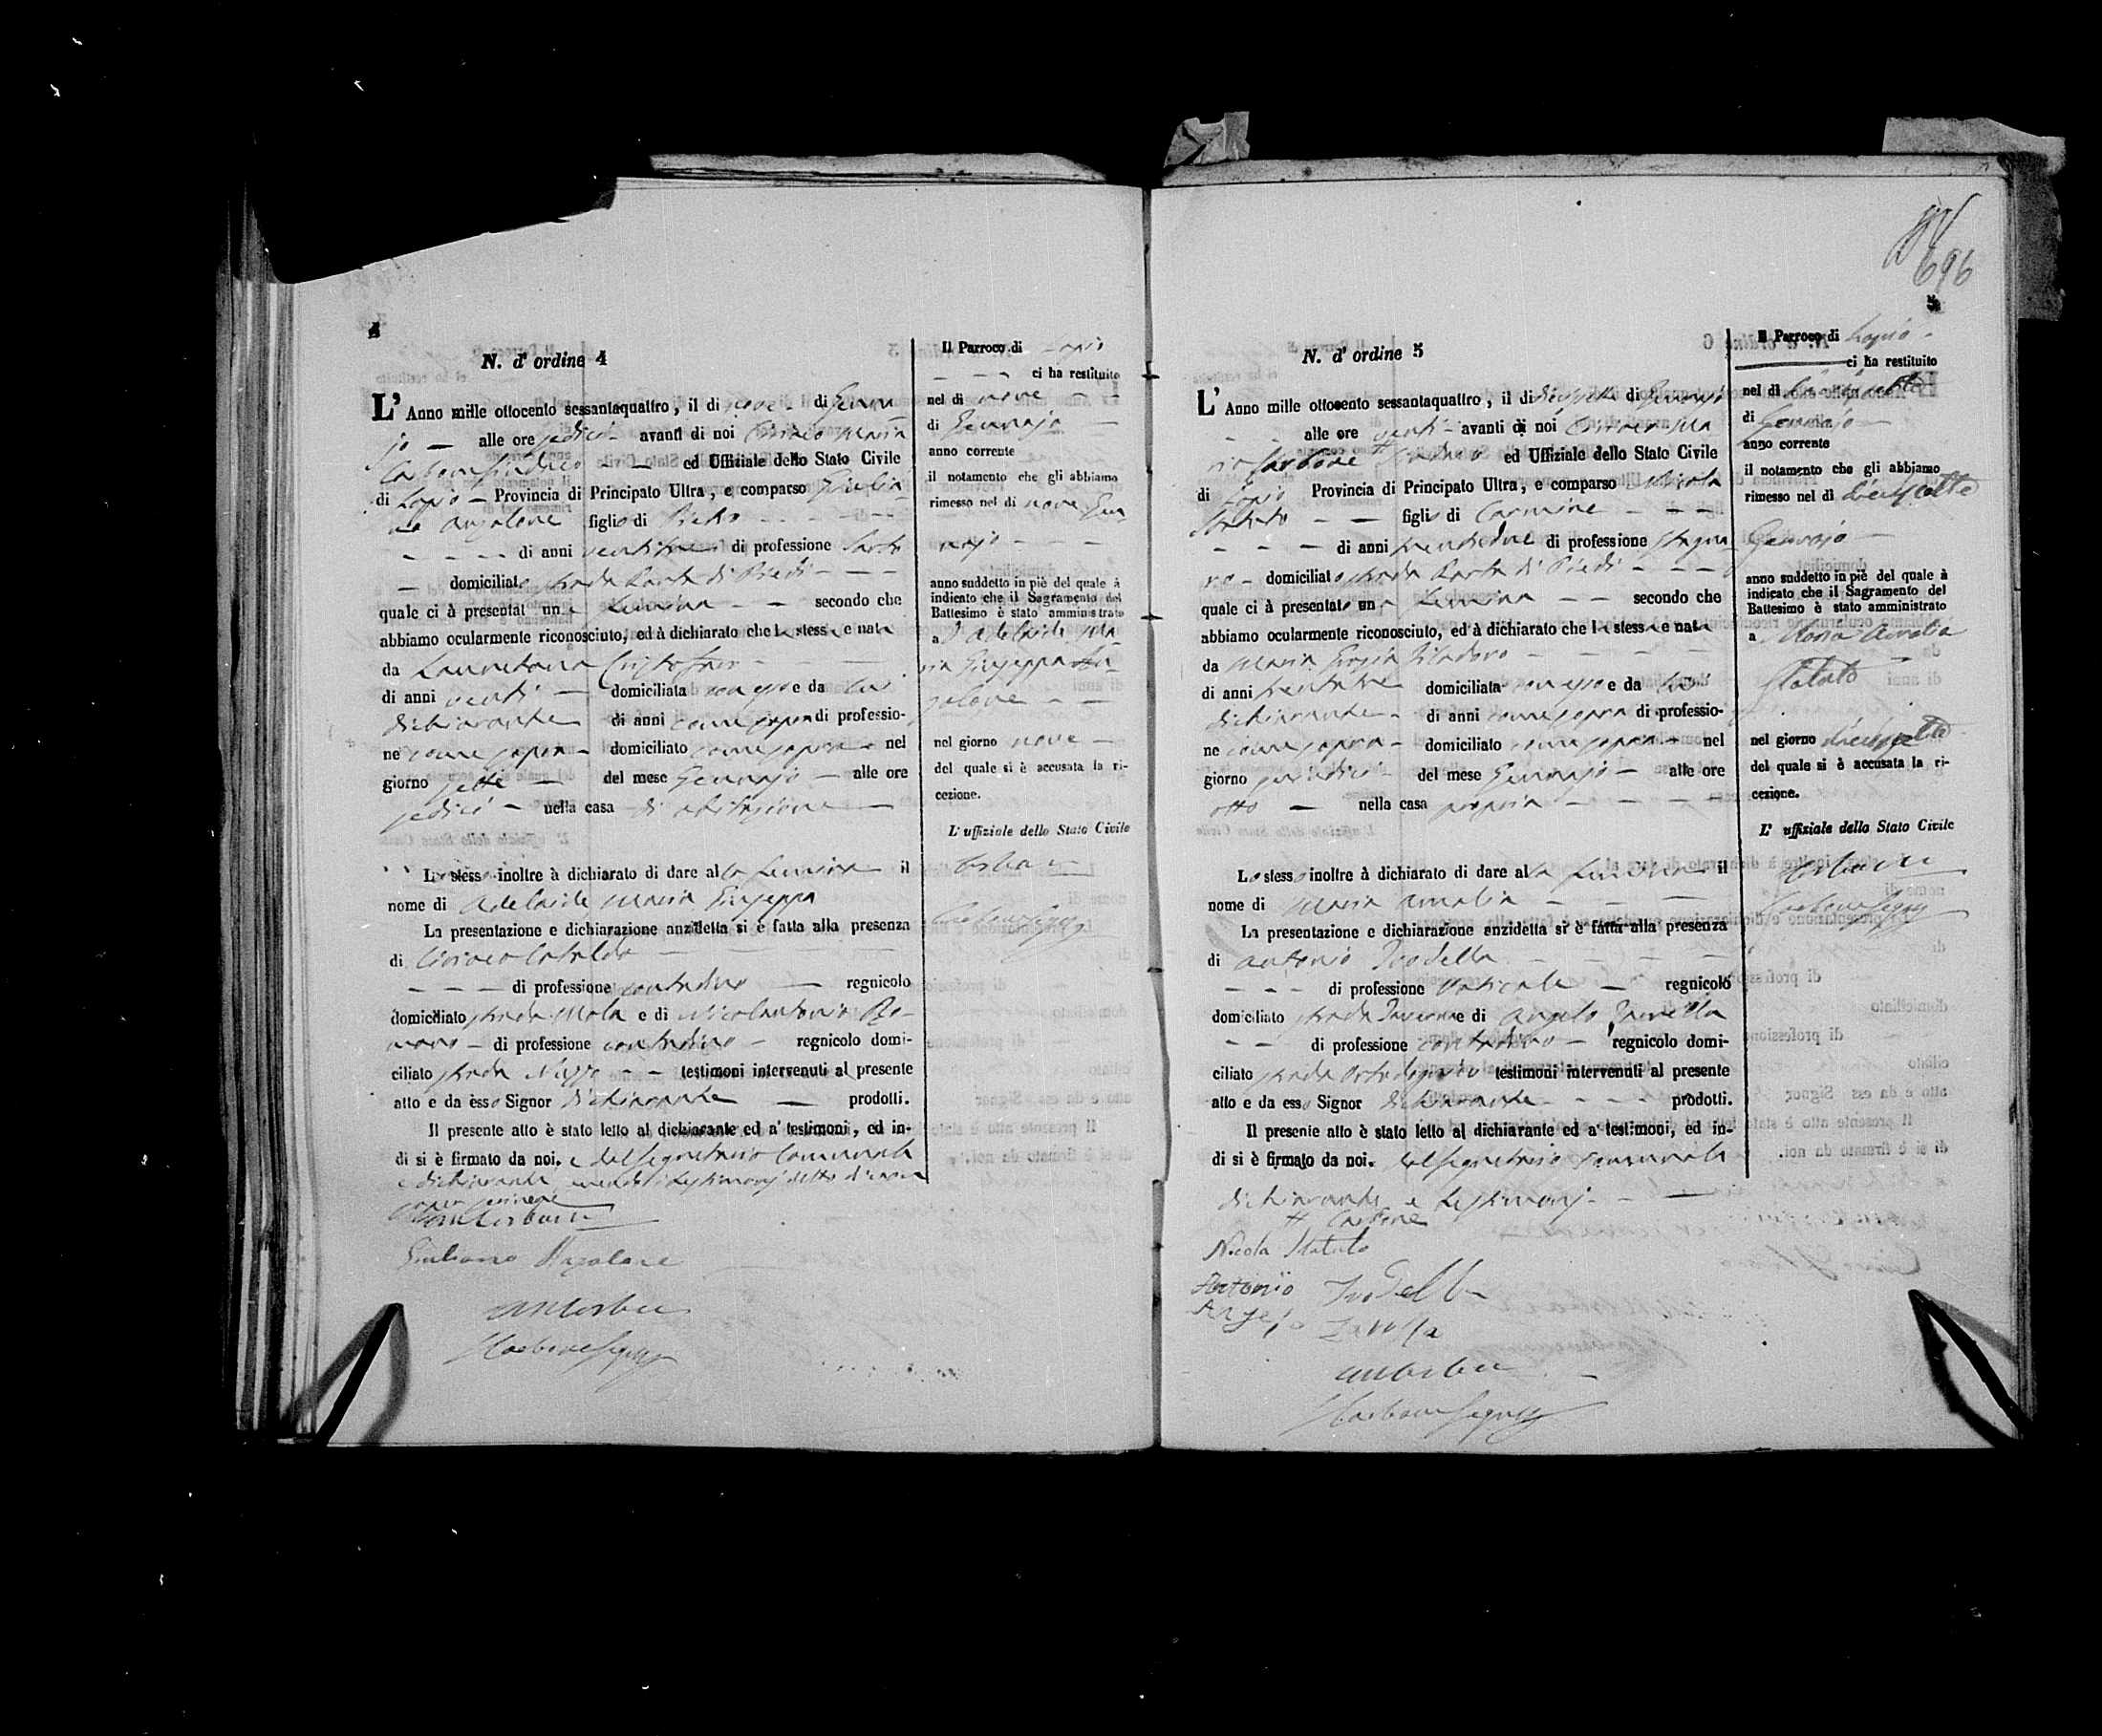 4
N. d' ordine 4
L' Anno mille ottocento sessantaquattro, il di nove di Genna
jo — alle ore sedici avanti di noi Ciriaco Maria
Carbone Sindaco — ed Uffiziale dello Stato Civile
di Lapio — Provincia di Principato Ultra, e comparso Giulia
no Anzalone figlio di Pietro
di anni ventitre di professione Sarto
— domiciliato strada Santa di Piedi
quale ci à presentat una femina — secondo che
abbiamo ocularmente riconosciuto, ed à dichiarato che la stessa e nata
da Lauretana Cristofaro
di anni venti — domiciliata con esso e da lui
dichiarante di anni come sopra di professio-
ne come sopra — domiciliato come sopra — nel
giorno sette — del mese Gennajo — alle ore
sedici — nella casa di abitazione —
Lo stesso inoltre à dichiarato di dare alla femina il
nome di Adelaide Maria Giuseppa
La presentazione e dichiarazione anzidetta si è fatta alla presenza
di Ciriaco Cataldo
di professione contadino — regnicolo
domiciliato strada Mola e di Nicolantonio Ro-
mano — di professione contadino — regnicolo domi-
ciliato strada — testimoni intervenuti al presente
atto e da esso Signor dichiarante — prodotti.
Il presente atto è stato letto al dichiarante ed a' testimoni, ed in-
di si è firmato da noi. e dal segretario Comunale
e dichiarante
Giuliano Anzalone
Il Parroco di Lapio
ci ha restituito
nel di nove
di Gennajo —
anno corrente
il notamento che gli abbiamo
rimesso nel di nove Gen
najo
anno suddetto in piè del quale à
indicato che il Sagramento del
Battesimo è stato amministrato
a Adelaide Ma
ria Giuseppa An
zalone
nel giorno nove —
del quale si è accusata la ri-
cezione.
L' uffiziale dello Stato Civile
696
5
N. d' ordine 5
L' Anno mille ottocento sessantaquattro, il di diecisette di Gennajo
alle ore venti — avanti di noi Ciriaco Ma
ria Carbone Sindaco ed Uffiziale dello Stato Civile
di Lapio Provincia di Principato Ultra, e comparso Nicola
Statuto — figlio di Carmine
di anni trentadue di professione stagna
ro — domiciliato strada Santa di Piedi
quale ci à presentato una femina — secondo che
abbiamo ocularmente riconosciuto, ed à dichiarato che la stessa e nata
da Maria Grazia
di anni trentatre domiciliata con esso e da lui
dichiarante — di anni come sopra di professio-
ne come sopra — domiciliato come sopra — nel
giorno sedici — del mese Gennajo — alle ore
otto — nella casa propria
Lo stesso inoltre à dichiarato di dare alla femina il
nome di Maria Amalia
La presentazione e dichiarazione anzidetta si è fatta alla presenza
di Antonio Iuodella
di professione Vaticale — regnicolo
domiciliato strada e di Angelo
di professione contadino — regnicolo domi-
ciliato strada testimoni intervenuti al presente
atto e da esso Signor dichiarante prodotti.
Il presente atto è stato letto al dichiarante ed a' testimoni, ed in-
di si è firmato da noi. dal segretario comunale
dichiarante e testimonj —
# Carbone
Nicola Statuto
Antonio
Angelo
Il Parroco di Lapio —
ci ha restituito
nel di diecisette
di Gennajo —
anno corrente
il notamento che gli abbiamo
rimesso nel di diecisette
Gennajo —
anno suddetto in piè del quale à
indicato che il Sagramento del
Battesimo è stato amministrato
a Maria Amalia
Statuto
nel giorno diecisette
del quale si è accusata la ri-
cezione.
L' uffiziale dello Stato Civile